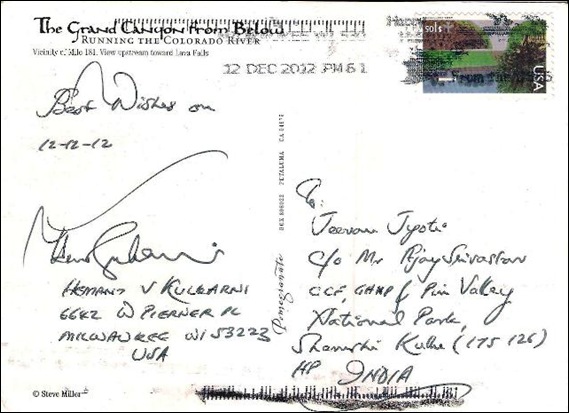 The Grand Canyon from Below
RUNNING THE COLORADO RIVER
Vicinity of Mile 181. View upstream toward Lava Falls
12 DEC 2012 PM 6 1
From the
USA
Best Wishes on
12-12-12
HEMANT V KULKARNI
6642 W PIERNER PL
MILWAUKEE WI 53223
USA
© Steve Miller
Pomegranate
BOX 808022 PETALUMA CA 94975
To,
Jeevan Jyoti
c/o Mr Ajay Srivastav
CCF, GHNP & Pin Valley
National Park,
Shamshi Kullu (175 126)
HP INDIA